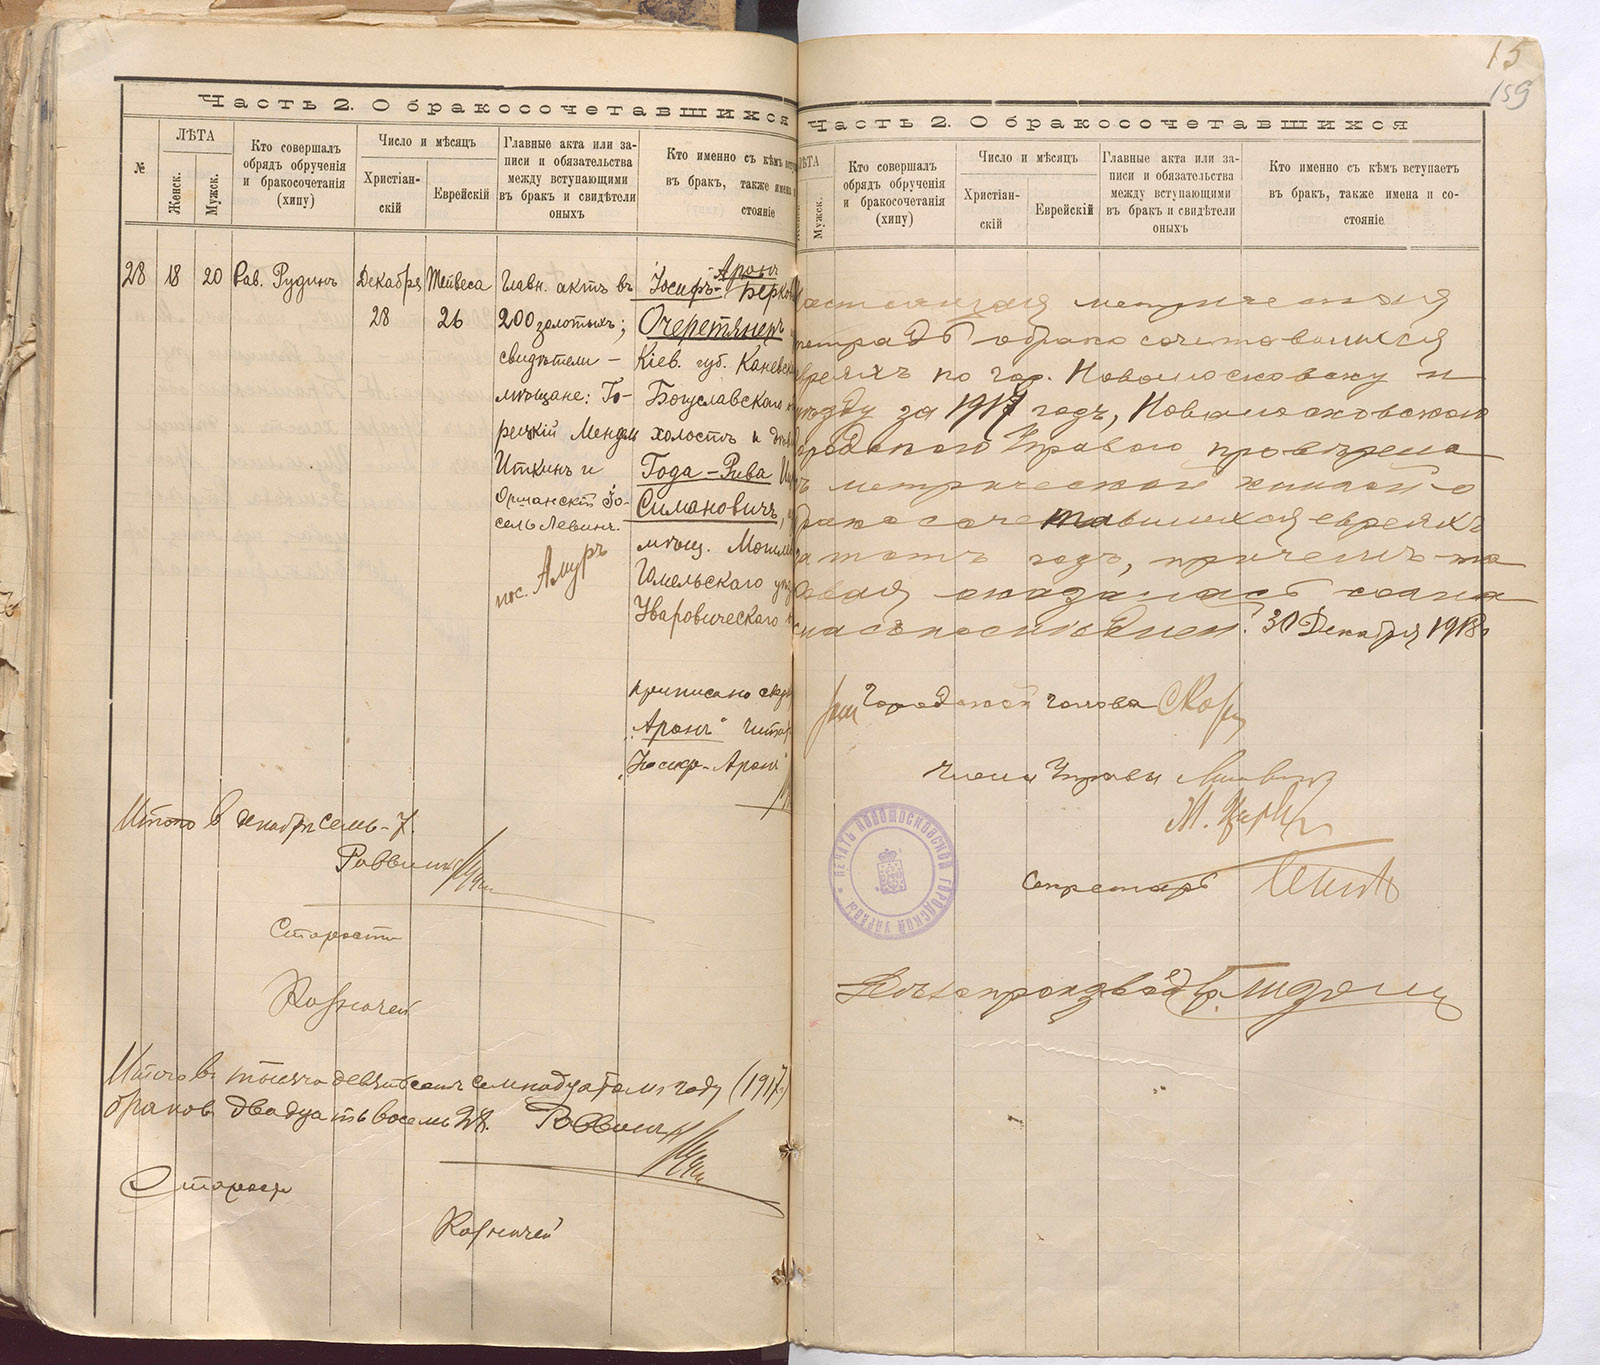 Часть 2. О бракосочетавшихся
№
ЛѢТА
Женск.
Мужск.
Кто совершалъ
обрядъ обрученія
и бракосочетанія
(хипу)
Число и мѣсяцъ
Христіан-
скій
Еврейскій
Главные акта или за-
писи и обязательства
между вступающими
въ бракъ и свидѣтели
оныхъ
Кто именно съ кѣмъ всту
въ бракъ, также имена и
стояніе
28
18
20
Рав. Рудинъ
Декабря
28
Тейвеса
26
Главн. актъ въ
200 золотыхъ;
свидѣтели –
мѣщане: Го-
рецкій Мендель
Иткинъ и
Оршанскій Іо-
сель Левинъ.
пос. Амуръ
Аронъ
Іосифъ- Берков
Очеретянеръ
Кіев. губ. Каневск
Богуславскаго
холостъ и дѣв
Года-Рива
Симановичъ,
мѣщ. Могил
Гомельскаго уѣз
Уваровическаго
приписано сверху
„Аронъ" читат
„Іосифъ-Аронъ"
Итого в декабрѣ семь-7.
Раввинъ
Староста
Казначей
Итого въ тысяча девятьсотъ семнадцатомъ году (1917)
браковъ двадцать восемь 28. Раввинъ
Староста
Казначей
15
159
Часть 2. О бракосочетавшихся
ЛѢТА
Мужск.
Кто совершалъ
обрядъ обрученія
и бракосочетанія
(хипу)
Число и мѣсяцъ
Христіан-
скій
Еврейскій
Главные акта или за-
писи и обязательства
между вступающими
въ бракъ и свидѣтели
оныхъ
Кто именно съ кѣмъ вступаетъ
въ бракъ, также имена и со-
стояніе
Настоящая метрическая
тетрадь о бракосочетавшихся
евреяхъ по гор. Новомосковску и
уѣзду за 1917 годъ, Новомосковскою
Городскою Управою провѣрена
съ метрической книгой о
бракосочетавшихся евреяхъ
за тотъ годъ, причемъ та-
ковая оказалась согла
сна съ послѣдней. 30 Декабря 1918 г.
Городской голова
Члены Управы
Секретарь
Дѣлопроизвод.
ПЕЧАТЬ НОВОМОСКОВСКОЙ ГОРОДСКОЙ УПРАВЫ